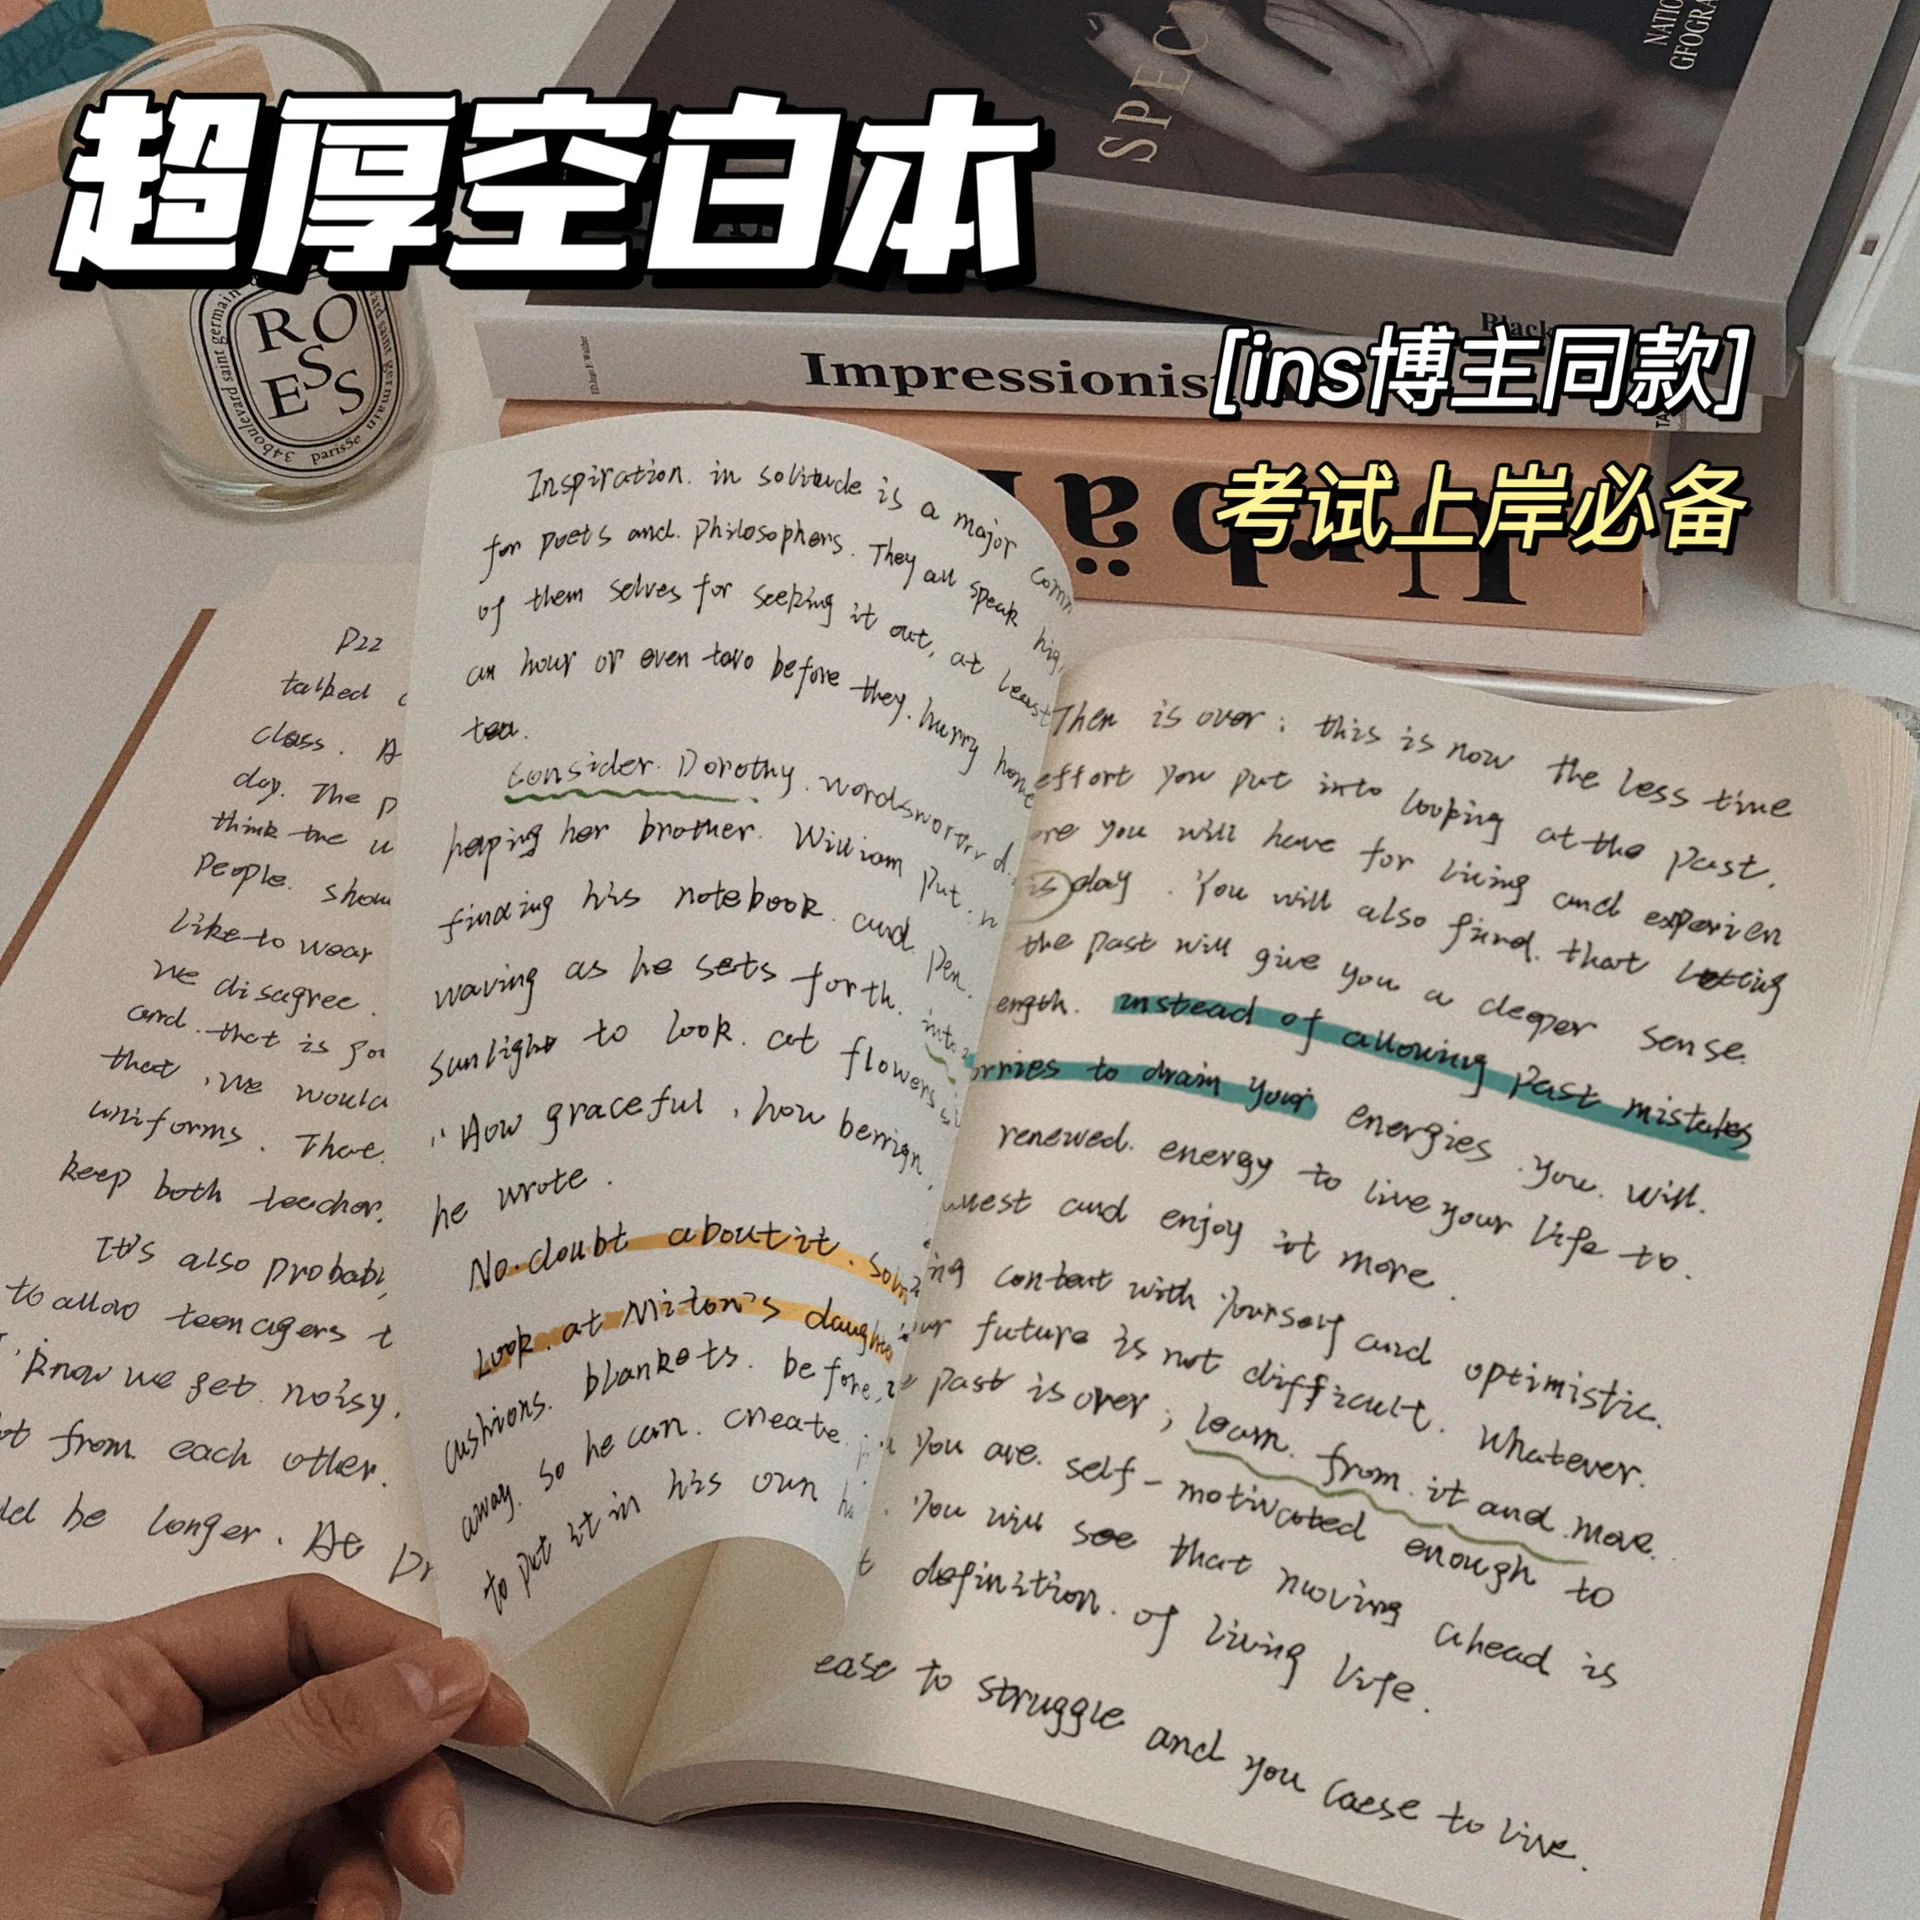 超厚空白本
[ins博主同款]
考试上岸必备
NATIO
GEOGRA
SPEC
Black
Impressionis
Urbä
ROSES
34 boulevard saint germain paris5e
P22
talked
class. A
day. The p
think the u
People. show
like to wear
we disagree.
and. that is for
that, we would
uniforms. That.
keep both teacher.
It's also probabl
to allow teenagers t
know we get noisy.
ot from each other.
ld be longer. At Pr
Inspiration. in solitude is a major comm
for poets and. philosophers. They all speak hig
of them selves for seeking it out, at least
an hour or even two before they. hurry home
tea.
Consider. Dorothy. wordsworth d.
helping her brother. William put. n
finding his notebook. and. Pen.
waving as he sets forth. int
sunlight to look. at flowers
"How graceful, how benign,
he wrote.
No. doubt about it. Som
Look. at Milton's daught
cushions. blankets. before,
away. so he can. create.
to put it in his own h
Then is over: this is now the less time
effort you put into looking at the past.
ore you will have for living and experien
is day. You will also find. that letting
the past will give you a deeper sense.
ength. instead of allowing past mistakes
orries to drain your energies. you. will.
renewed. energy to live your life to.
uest and enjoy it more.
ing content with yourself and optimistic.
our future is not difficult. Whatever.
past is over; learn. from. it and. move.
you are. self-motivated enough to
You will see that moving ahead is
t definition. of living life.
ease to struggle and you caese to live.